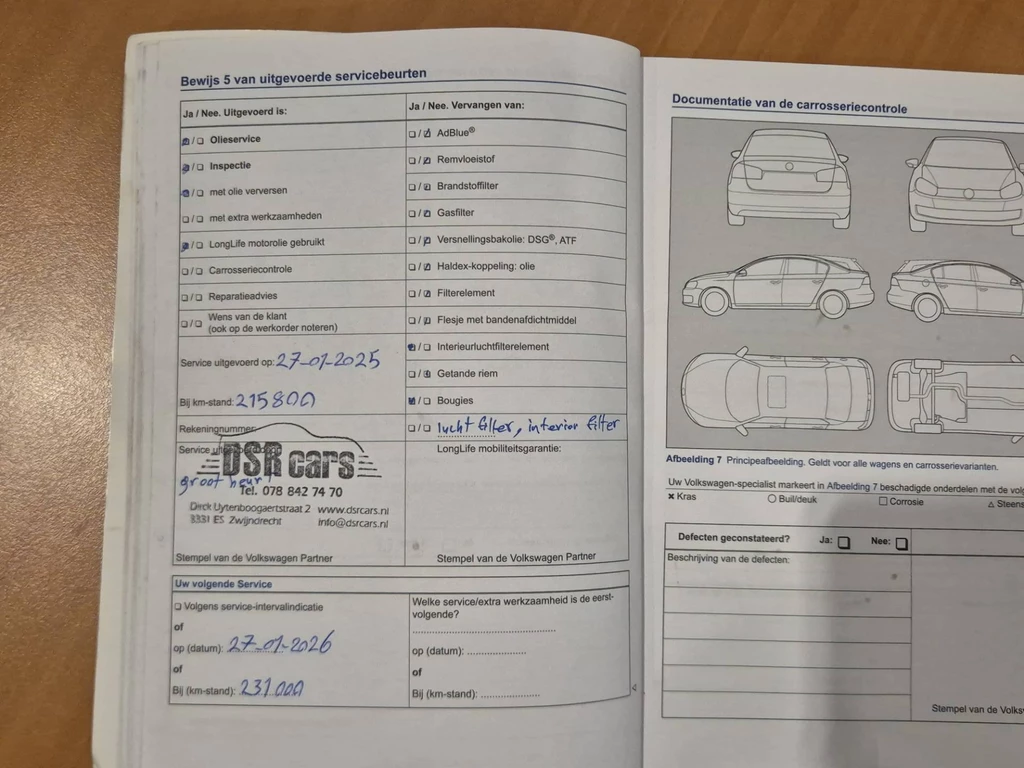 Bewijs 5 van uitgevoerde servicebeurten
Ja / Nee. Uitgevoerd is:
Olieservice
Inspectie
met olie verversen
met extra werkzaamheden
LongLife motorolie gebruikt
Carrosseriecontrole
Reparatieadvies
Wens van de klant
(ook op de werkorder noteren)
Service uitgevoerd op: 27-01-2025
Bij km-stand: 215800
Rekeningnummer:
Service
DSR cars
groot
Tel. 078 842 74 70
Dirck Uytenboogaertstraat 2 www.dsrcars.nl
3331 ES Zwijndrecht info@dsrcars.nl
Stempel van de Volkswagen Partner
Ja / Nee. Vervangen van:
AdBlue®
Remvloeistof
Brandstoffilter
Gasfilter
Versnellingsbakolie: DSG®, ATF
Haldex-koppeling: olie
Filterelement
Flesje met bandenafdichtmiddel
Interieurluchtfilterelement
Getande riem
Bougies
lucht filter, interior filter
LongLife mobiliteitsgarantie:
Stempel van de Volkswagen Partner
Uw volgende Service
Volgens service-intervalindicatie
of
op (datum): 27-01-2026
of
Bij (km-stand): 231000
Welke service/extra werkzaamheid is de eerst-
volgende?
op (datum):
of
Bij (km-stand):
Documentatie van de carrosseriecontrole
Afbeelding 7 Principeafbeelding. Geldt voor alle wagens en carrosserievarianten.
Uw Volkswagen-specialist markeert in Afbeelding 7 beschadigde onderdelen met de
Kras Buil/deuk Corrosie
Defecten geconstateerd? Ja: Nee:
Beschrijving van de defecten:
Stempel van de